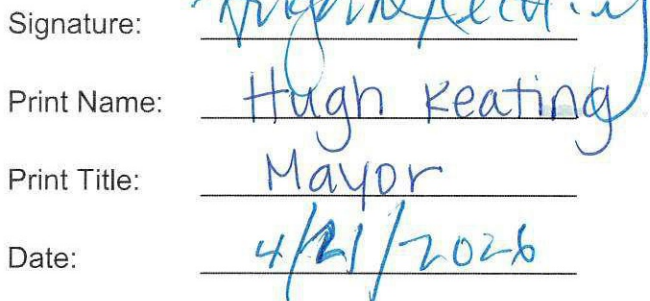 Signature:
Print Name: Hugh Keating
Print Title: Mayor
Date: 4/21/2026